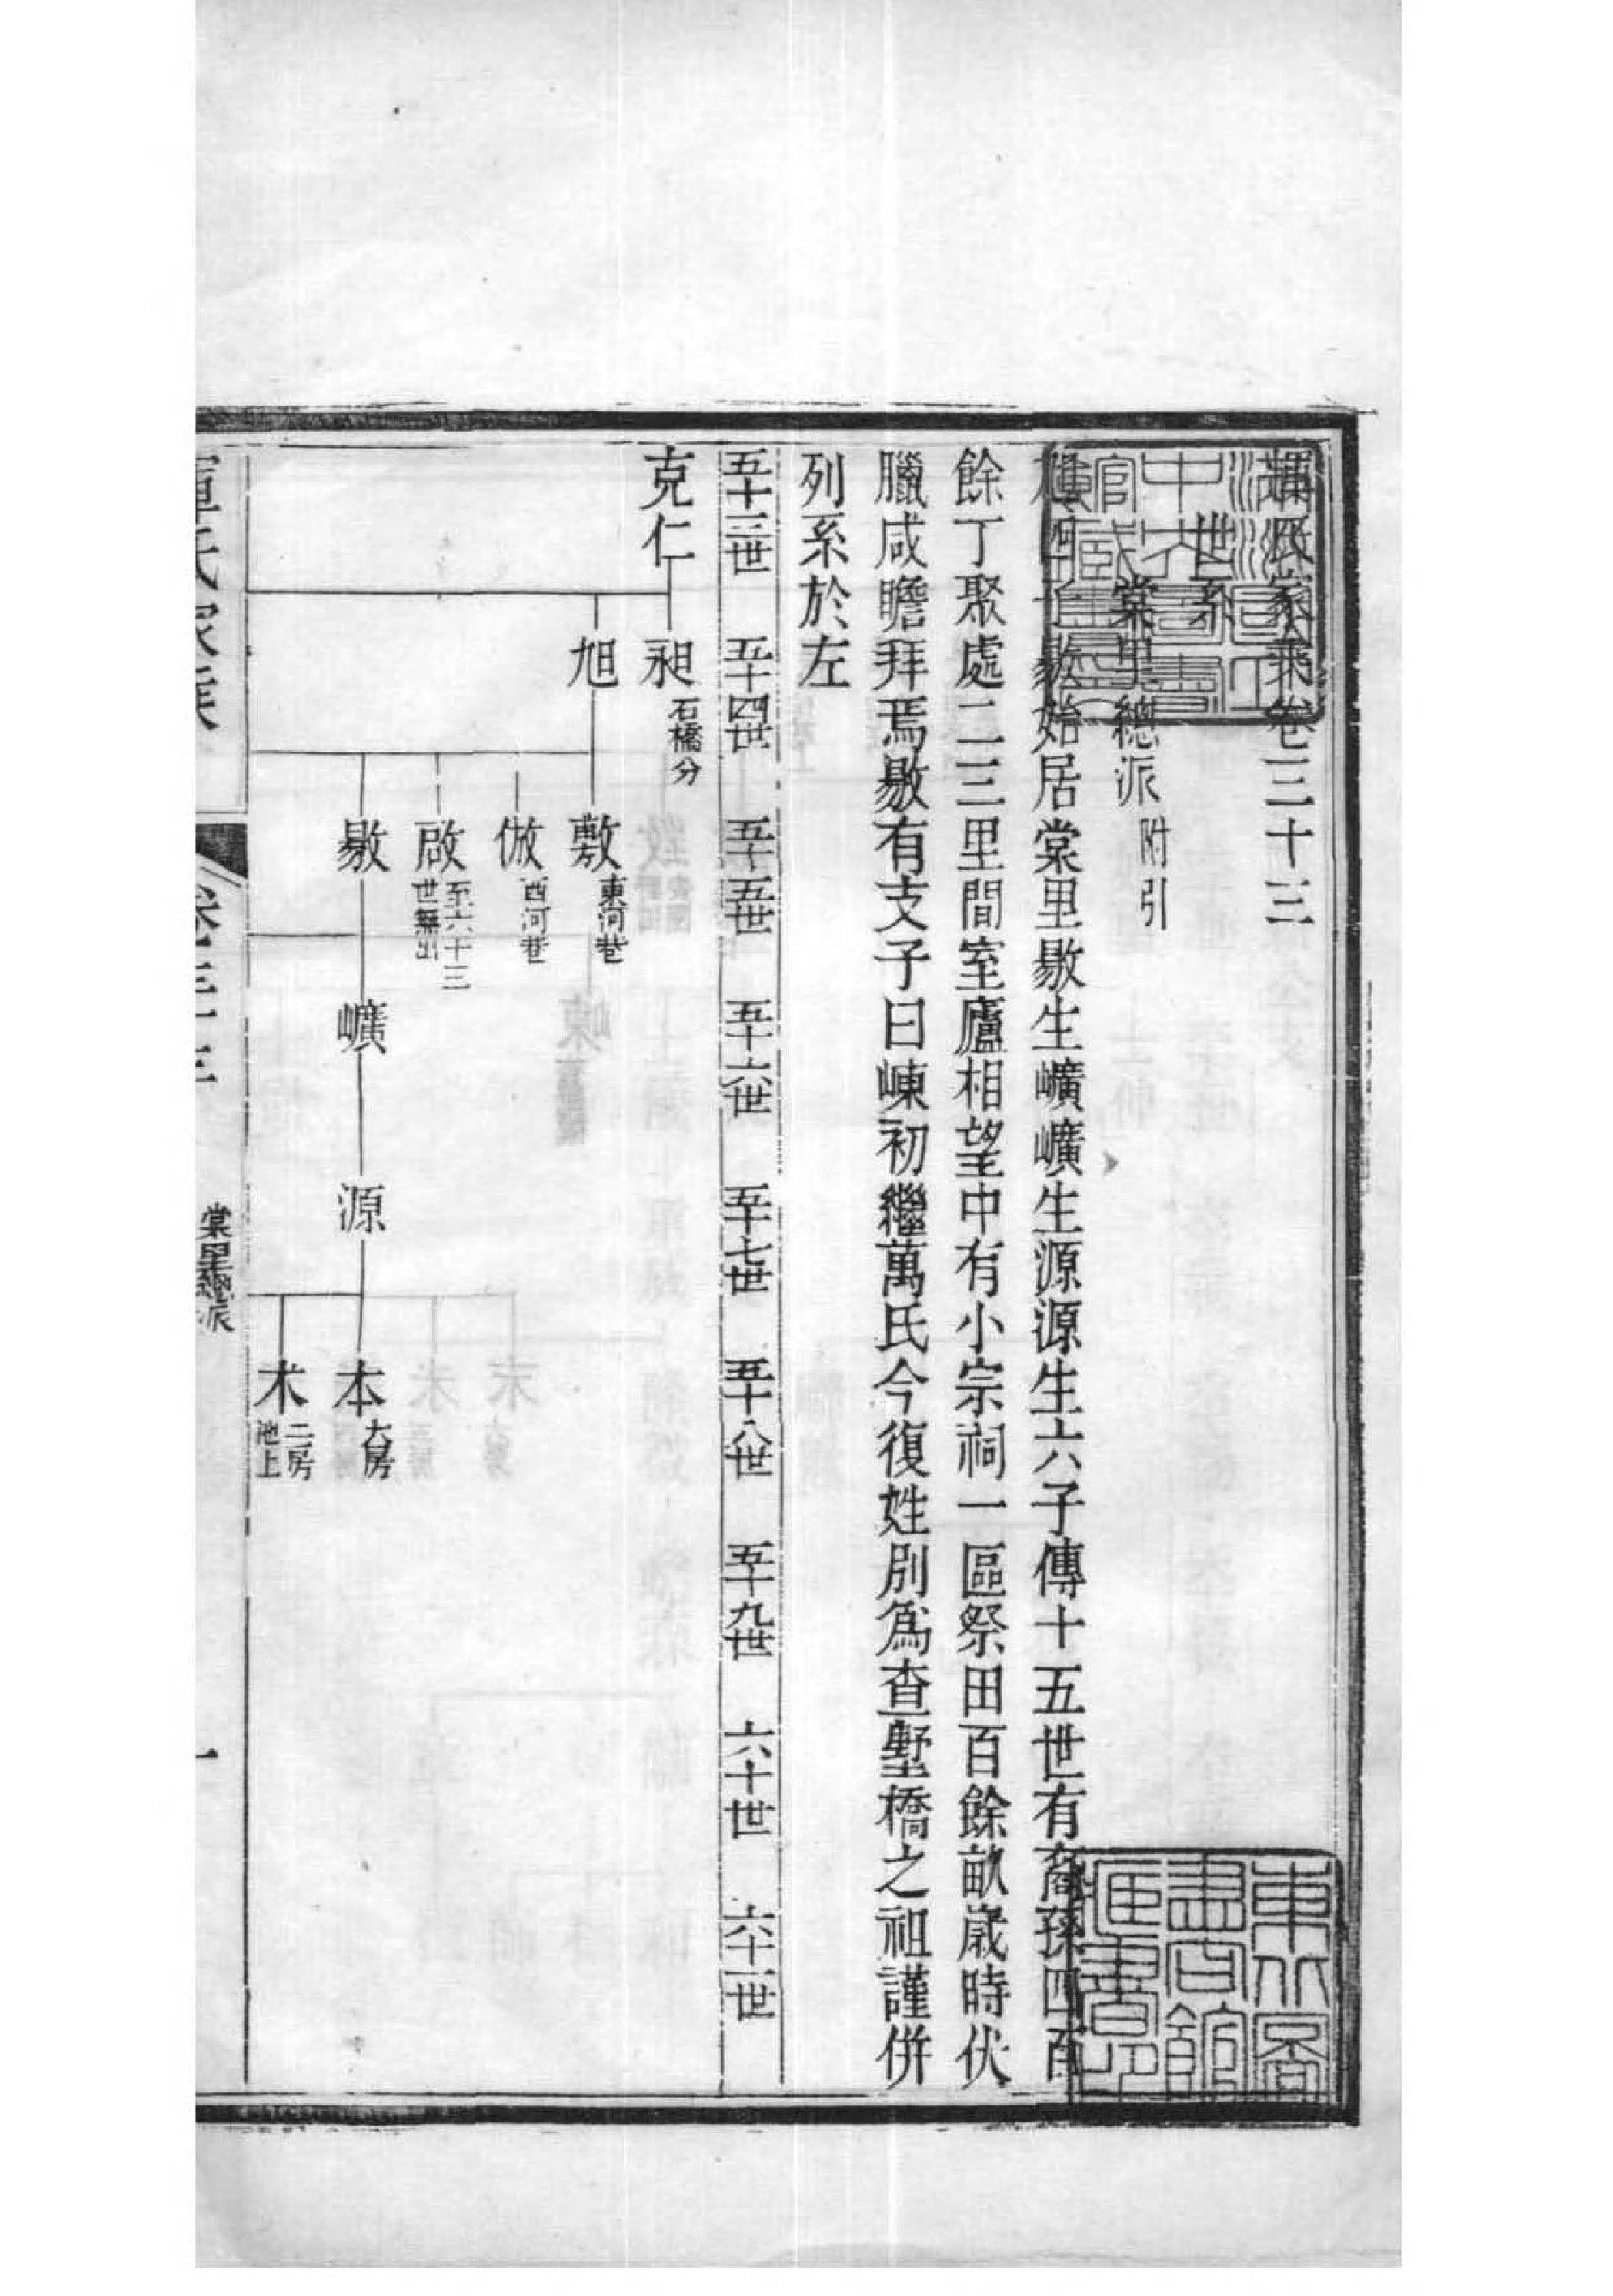 惲氏家乘卷三十三
世系
棠里總派 附引
四子敭始居棠里敭生 生源源生六子傳十五世有裔孫四百
餘丁聚處二三里間室廬相望中有小宗祠一區祭田百餘畝歲時伏
臘咸瞻拜焉敭有支子曰崠初繼萬氏今復姓別為查墅橋之祖謹併
列系於左
五十三世 五十四世 五十五世 五十六世 五十七世 五十八世 五十九世 六十世 六十一世
克仁 昶 石橋分
旭 敷 東河巷
倣 西河巷
啟 至六十三世無出
敭 源 本 大房
朮 二房池上
惲氏家乘 卷三十三 棠里總派 一